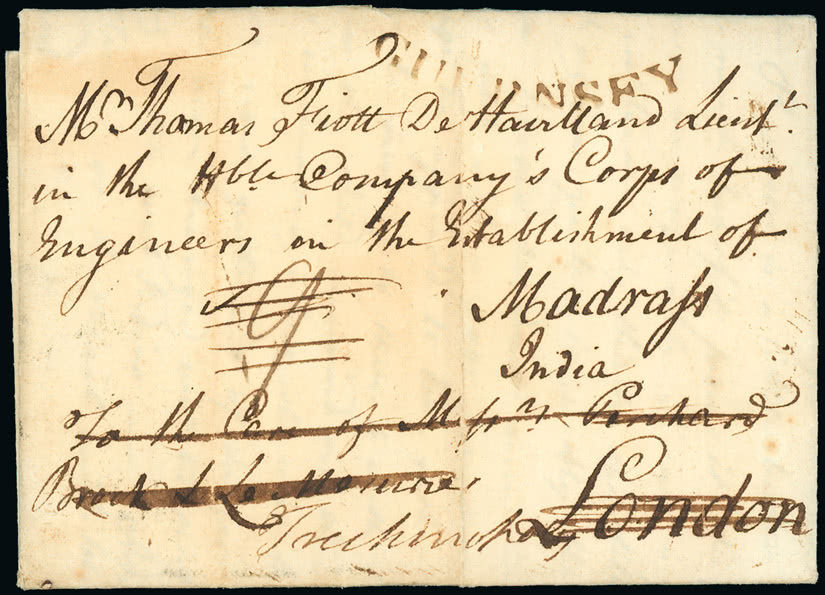 GUERNSEY
Mr. Thomas Fiott De Havilland Lieut.
in the Hble Company's Corps of
Engineers on the Establishment of
9
Madrass
India
To the Care of Messrs. Perchard
Brock & Le Mesurier
London